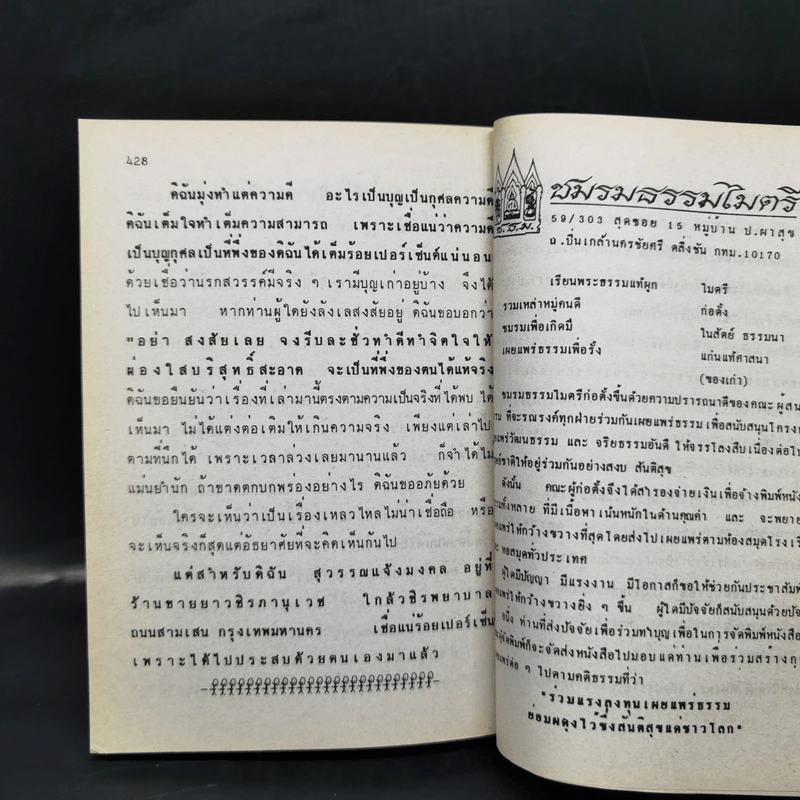 428
ดิฉันมุ่งทำแต่ความดี อะไรเป็นบุญเป็นกุศลความดี
ดิฉันเต็มใจทำเต็มความสามารถ เพราะเชื่อแน่ว่าความดี
เป็นบุญกุศลเป็นที่พึ่งของดิฉันได้เต็มร้อยเปอร์เซ็นต์แน่นอน
ด้วยเชื่อว่านรกสวรรค์มีจริง ๆ เรามีบุญเก่าอยู่บ้าง จึงได้
ไปเห็นมา หากท่านผู้ใดยังลังเลสงสัยอยู่ ดิฉันขอบอกว่า
"อย่า สงสัยเลย จงรีบละชั่วทำดีทำจิตใจให้
ผ่องใสบริสุทธิ์สะอาด จะเป็นที่พึ่งของตนได้แท้จริง
ดิฉันขอยืนยันว่าเรื่องที่เล่ามานี้ตรงตามความเป็นจริงที่ได้พบ ได้
เห็นมา ไม่ได้แต่งต่อเติมให้เกินความจริง เพียงแต่เล่าไป
ตามที่นึกได้ เพราะเวลาล่วงเลยมานานแล้ว ก็จำได้ไม่
แม่นยำนัก ถ้าขาดตกบกพร่องอย่างไร ดิฉันขออภัยด้วย
ใครจะเห็นว่าเป็นเรื่องเหลวไหลไม่น่าเชื่อถือ หรือ
จะเห็นจริงก็สุดแต่อัธยาศัยที่จะคิดเห็นกันไป
แต่สำหรับดิฉัน สุวรรณแจ้งมงคล อยู่ที่
ร้านขายยาวชิรภานุเวช ใกล้วชิรพยาบาล
ถนนสามเสน กรุงเทพมหานคร เชื่อแน่ร้อยเปอร์เซ็น
เพราะได้ไปประสบด้วยตนเองมาแล้ว
ช.ธ.ม.
ชมรมธรรมไมตรี
59/303 สุดซอย 15 หมู่บ้าน ป.ผาสุข
ถ.ปิ่นเกล้านครชัยศรี ตลิ่งชัน กทม.10170
เรียนพระธรรมแท้ผูก ไมตรี
รวมเหล่าหมู่คนดี ก่อตั้ง
ชมรมเพื่อเกิดมี ในสัตย์ ธรรมนา
เผยแพร่ธรรมเพื่อรั้ง แก่นแท้ศาสนา
(ของเก่า)
ชมรมธรรมไมตรีก่อตั้งขึ้นด้วยความปรารถนาดีของคณะ ผู้สน
ที่จะรณรงค์ทุกฝ่ายร่วมกันเผยแพร่ธรรม เพื่อสนับสนุนโครง
แพร่วัฒนธรรม และ จริยธรรมอันดี ให้จรรโลงสืบเนื่องต่อไป
ชาติให้อยู่ร่วมกันอย่างสงบ สันติสุข
ดังนั้น คณะผู้ก่อตั้งจึงได้สำรองจ่ายเงินเพื่อจ้างพิมพ์หนัง
ทั้งหลาย ที่มีเนื้อหาเน้นหนักในด้านคุณค่า และ จะพยาย
แพร่ให้กว้างขวางที่สุดโดยส่งไปเผยแพร่ตามห้องสมุดโรงเรี
หอสมุดทั่วประเทศ
ผู้ใดมีปัญญา มีแรงงาน มีโอกาสก็ขอให้ช่วยกันประชาสัมพั
แพร่ให้กว้างขวางยิ่ง ๆ ขึ้น ผู้ใดมีปัจจัยก็สนับสนุนด้วยปัจ
อนึ่ง ท่านที่ส่งปัจจัยเพื่อร่วมทำบุญเพื่อในการจัดพิมพ์หนังสือ
ผู้จัดพิมพ์ก็จะจัดส่งหนังสือไปมอบแด่ท่านเพื่อร่วมสร้างกุ
แพร่ต่อ ๆ ไปตามคติธรรมที่ว่า
"ร่วมแรงลงทุนเผยแพร่ธรรม
ย่อมผดุงไว้ซึ่งสันติสุขแด่ชาวโลก"